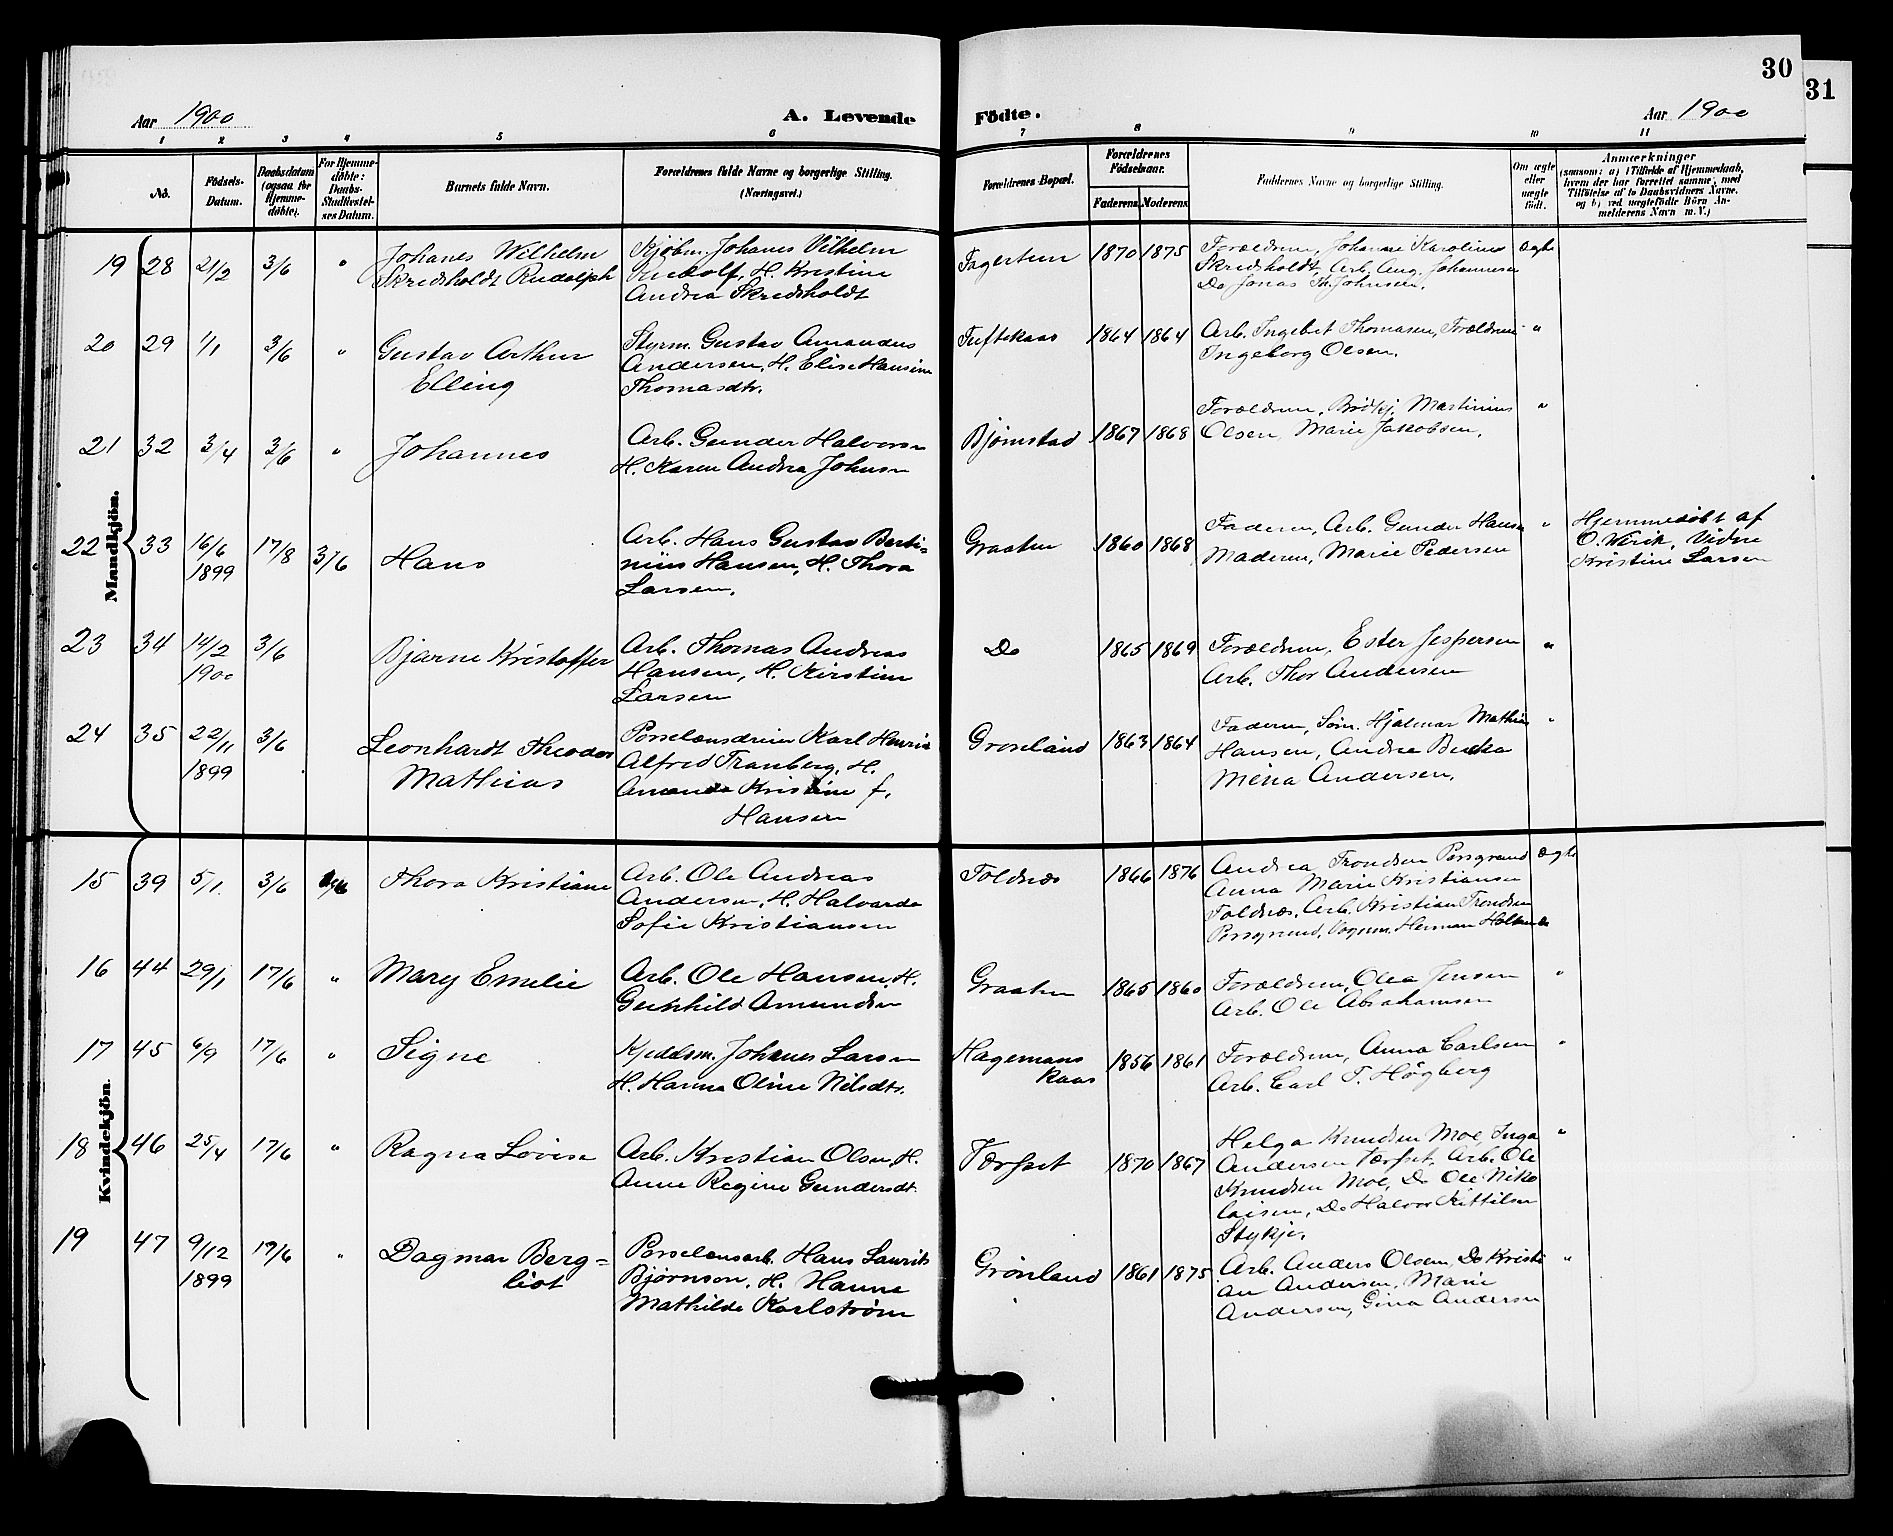 30
31
Aar 1900
A. Levende Födte.
Aar 1900
1 2 3 4 5 6 7 8 9 10 11
No.
Födsels-
Datum.
Daabsdatum
(ogsaa for
Hjemme-
döbte).
For Hjemme-
döbte:
Daabs-
Stadfæstel-
ses Datum.
Barnets fulde Navn.
Forældrenes fulde Navne og borgerlige Stilling.
(Næringsvei.)
Forældrenes Bopæl.
Forældrenes
Födselsaar.
Faderens Moderens
Faddernes Navne og borgerlige Stilling.
Om ægte
eller
uægte
födt.
Anmærkninger
(saasom: a) i Tilfælde af Hjemmedaab,
hvem der har forrettet samme, med
Tilföielse af to Daabsvidners Navne,
og b) ved uægtefödte Börn An-
melderens Navn m. V.)
Mandkjön.
19 28 21/2 3/6 "
Johanes Wilhelm
Skredsholdt Rudolph
Kjøbm. Johanes Vilhelm
Rudolf, H. Kristine
Andrea Skredsholdt
Fagertun 1870 1875
Forældrene, Johanne Karoline
Skredsholdt, Arb. Aug. Johannesen
Do Jonas Th. Johnsen.
Ægte
20 29 1/1 3/6 "
Gustav Arthur
Elling
Styrm. Gustav Amandus
Andersen, H. Elise Hansine
Thomasdtr.
Tuftekaas 1864 1864
Arb. Ingebret Thomasen, Forældrene
Ingeborg Olsen.
"
21 32 3/4 3/6 "
Johannes
Arb. Gunder Halvorsen
H. Karen Andrea Johnsen
Bjørnstad 1867 1868
Forældrene, Brødkj. Martinius
Olsen, Marie Jakobsen.
"
22 33 16/6 1899 17/8 3/6
Hans
Arb. Hans Gustav Berti-
nius Hansen, H. Thora
Larsen.
Graaten 1860 1868
Faderen, Arb. Gunder Hansen
Moderen, Marie Pedersen
"
Hjemmedøbt af
O. Vidne
Kristine Larsen
23 34 14/2 1900 3/6
Bjarne Kristoffer
Arb. Thomas Andreas
Hansen, H. Kirstine
Larsen
Do 1865 1869
Forældrene, Ester Jespersen
Arb. Thor Andersen
"
24 35 22/11 1899 3/6
Leonhardt Theodor
Mathias
Porselænsdreier Karl Henrik
Alfred Tranberg, H.
Amanda Kristine f.
Hansen
Grønland 1863 1864
Faderen, Søm. Hjalmar Mathias
Hansen, Andrea
Mina Andersen.
"
Kvindekjön.
15 39 5/1 3/6
Thora Kristiane
Arb. Ole Andreas
Andersen, H. Halvarda
Sofie Kristiansen
Foldnæs 1866 1876
Andrea Trondsen Porsgrund
Anna Marie Kristiansen
Foldnæs, Arb. Kristian Trondsen
Porsgrund, Vognm. Herman
Ægte
16 44 29/1 17/6 "
Mary Emelie
Arb. Ole Hansen, H.
Gunhild Amundsen
Graaten 1865 1860
Forældrene, Olea Jensen
Arb. Ole Abrahamsen
"
17 45 6/9 17/6 "
Signe
Kjedelsm. Johanes Larsen
H. Hanna Oline Nilsdtr.
Hagemans
kaas 1856 1861
Forældrene, Anna Carlsen
Arb. Carl T. Høgberg
"
18 46 25/4 17/6 "
Ragna Lovise
Arb. Kristian Olsen, H.
Anne Regine Gundersdt.
Tærfset 1870 1867
Helga Knudsen Moe, Inga
Andersen Tærfset, Arb. Ole
Knudsen Moe, Do Ole Niko
laisen, Do Halvor Kittilsen
Stykje.
"
19 47 9/12 1899 17/6 "
Dagmar Berg=
liot
Porselænsarb. Hans Laurits
Bjørnson, H. Hanna
Mathilde Karlstrøm
Grønland 1861 1875
Arb. Anders Olsen, Do Kristi
an Andersen, Marie
Andersen, Gina Andersen
"